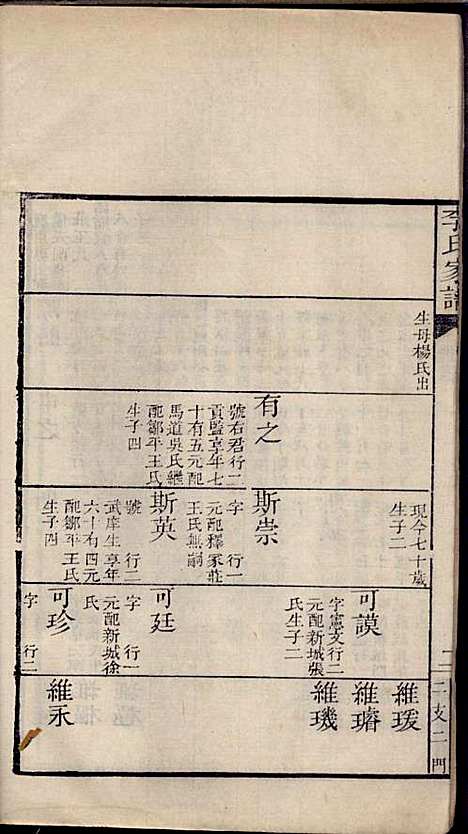 李氏家譜
二
二支二門
生母楊氏出
有之
號右君行二
貢監享年七
十有五元配
馬道吳氏繼
配鄒平王氏
生子四
現今七十歲
生子二
斯崇
字　行一
元配釋冢莊
王氏無嗣
斯英
號　行二
武庠生享年
六十有四元
配鄒平王氏
生子四
可謨
字憲文行二
元配新城張
氏生子二
可廷
字　行一
元配新城徐
氏
可珍
字　行二
維瑗
維璿
維璣
維永